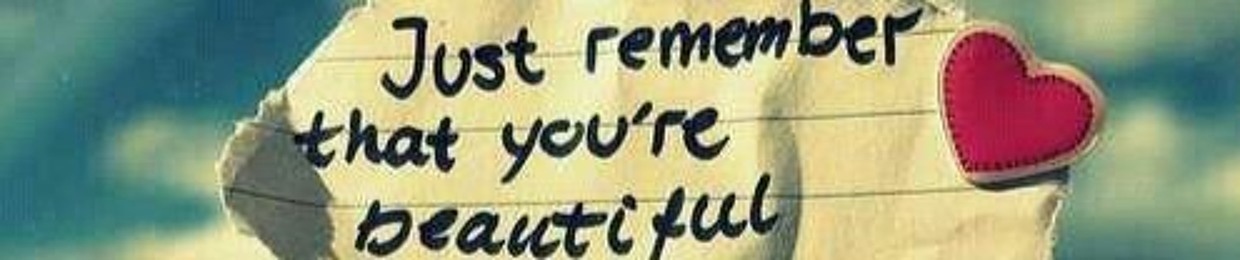 Just remember
that you're
beautiful